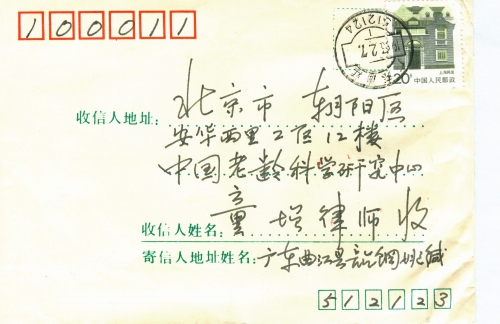 100011
512124
93.2.7.
上海民居
20分 中国人民邮政
收信人地址: 北京市 朝阳区
安华西里2区12楼
中国老龄科学研究中心
收信人姓名: 童增律师收
寄信人地址姓名: 广东曲江县
缄
512123